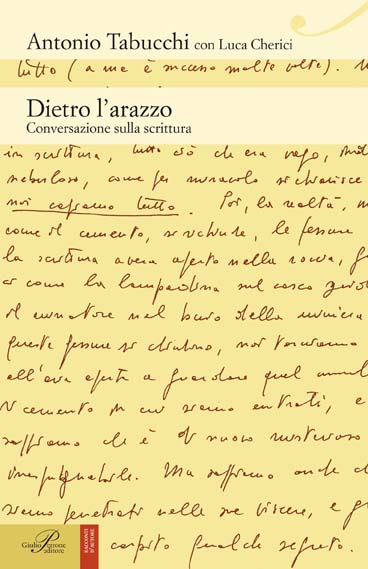 Antonio Tabucchi con Luca Cherici
tutto (a me è successo molte volte).
Dietro l'arazzo
Conversazione sulla scrittura
in scrittura, tutto ciò che era vago,
nebuloso, come per miracolo si chiarisce
noi capiamo tutto. Poi, la realtà,
come il cemento, si richiude, le fessure
la scrittura aveva aperto nella roccia,
come la lampadina sul casco
il minatore nel buio della miniera
queste fessure si chiudono, noi torniamo
all'aria aperta a guardare quel
cemento in cui siamo entrati, e
sappiamo che è di nuovo misterioso
inespugnabile. Ma sappiamo anche
siamo penetrati nelle sue viscere, e
carpito qualche segreto.
Giulio Perrone editore
RACCONTI
D'AUTORE